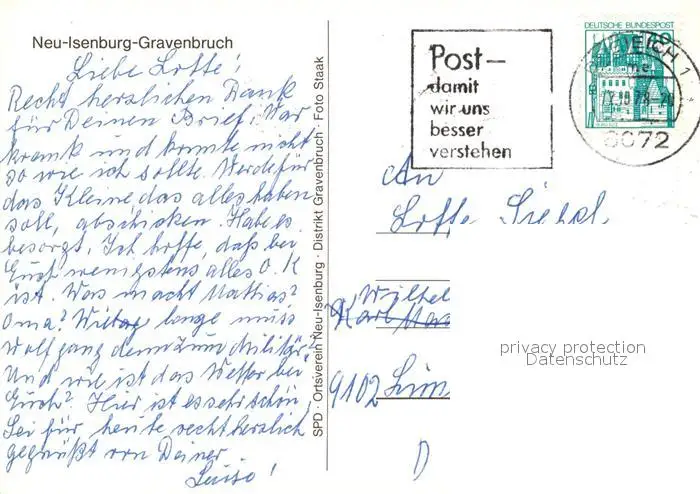 Neu-Isenburg-Gravenbruch
Liebe Lotte!
Recht herzlichen Dank
für Deinen Brief. War
krank und konnte nicht
so wie ich sollte. Werde für
das Kleine das alles haben
soll, abschicken. Habe es
besorgt. Ich hoffe, daß bei
Euch wenigstens alles O.K
ist. Was macht Mathias?
Oma? Wie lange muss
Wolfgang denn zum Militär?
Und wie ist das Wetter bei
Euch? Hier ist es sehr schön
Sei für heute recht herzlich
gegrüßt von Deiner
Luise!
SPD · Ortsverein Neu-Isenburg · Distrikt Gravenbruch · Foto Staak
Post-
damit
wir uns
besser
verstehen
DEUTSCHE BUNDESPOST
EICH 1
6072
An
Lotte
Wilhel
Karl
9102
D
privacy protection
Datenschutz